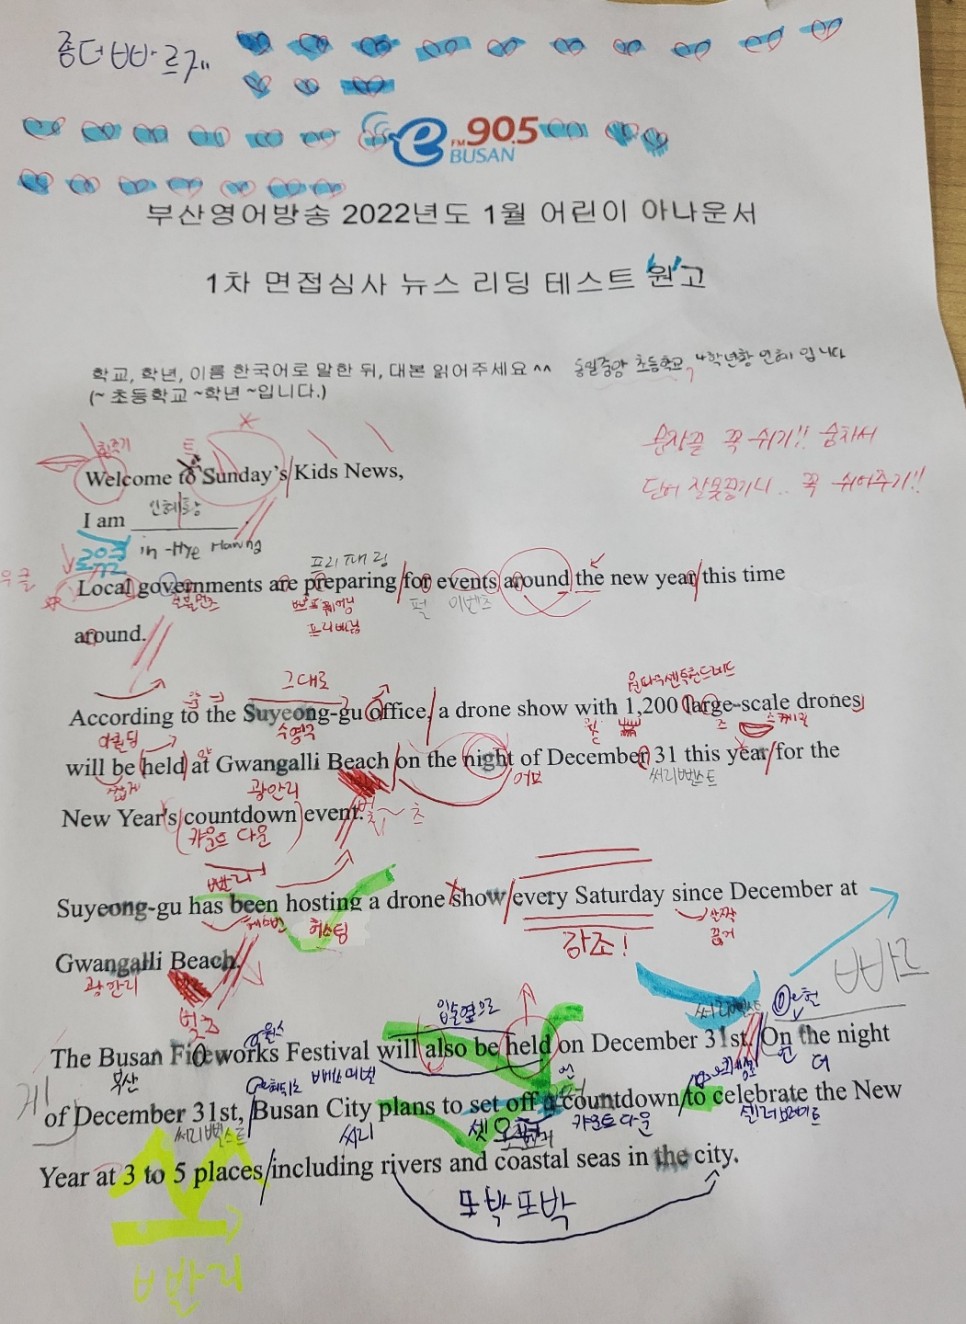 좀더 빠르게
e FM 90.5
BUSAN
부산영어방송 2022년도 1월 어린이 아나운서
1차 면접심사 뉴스 리딩 테스트 원고
학교, 학년, 이름 한국어로 말한 뒤, 대본 읽어주세요^^ 초등학교 4학년 입니다
(~ 초등학교 ~학년 ~입니다.)
문장끝 꼭 쉬기!! 숨차서
단어 잘못끊기니.. 꼭 쉬어주기!!
Welcome to Sunday's Kids News,
I am
in-Hye
프리패링
Local governments are preparing for events around the new year this time
펄 이벤츠
프리빼링
around.
그대로
According to the Suyeong-gu office, a drone show with 1,200 large-scale drones
어콜딩 수영구 즈 스케일
will be held at Gwangalli Beach on the night of December 31 this year for the
짧게 광안리 어브 써리뻘스트
New Year's countdown event.
카운트 다운
빨리
Suyeong-gu has been hosting a drone show every Saturday since December at
허스팅 강조! 살짝
끌기
Gwangalli Beach.
광안리 빠르
입술옆으로
The Busan Fireworks Festival will also be held on December 31st. On the night
부산 언 더
of December 31st, Busan City plans to set off a countdown to celebrate the New
써리뻘스트 씨리 카운트 다운 셀러브레이트
Year at 3 to 5 places including rivers and coastal seas in the city.
또박또박
빨리